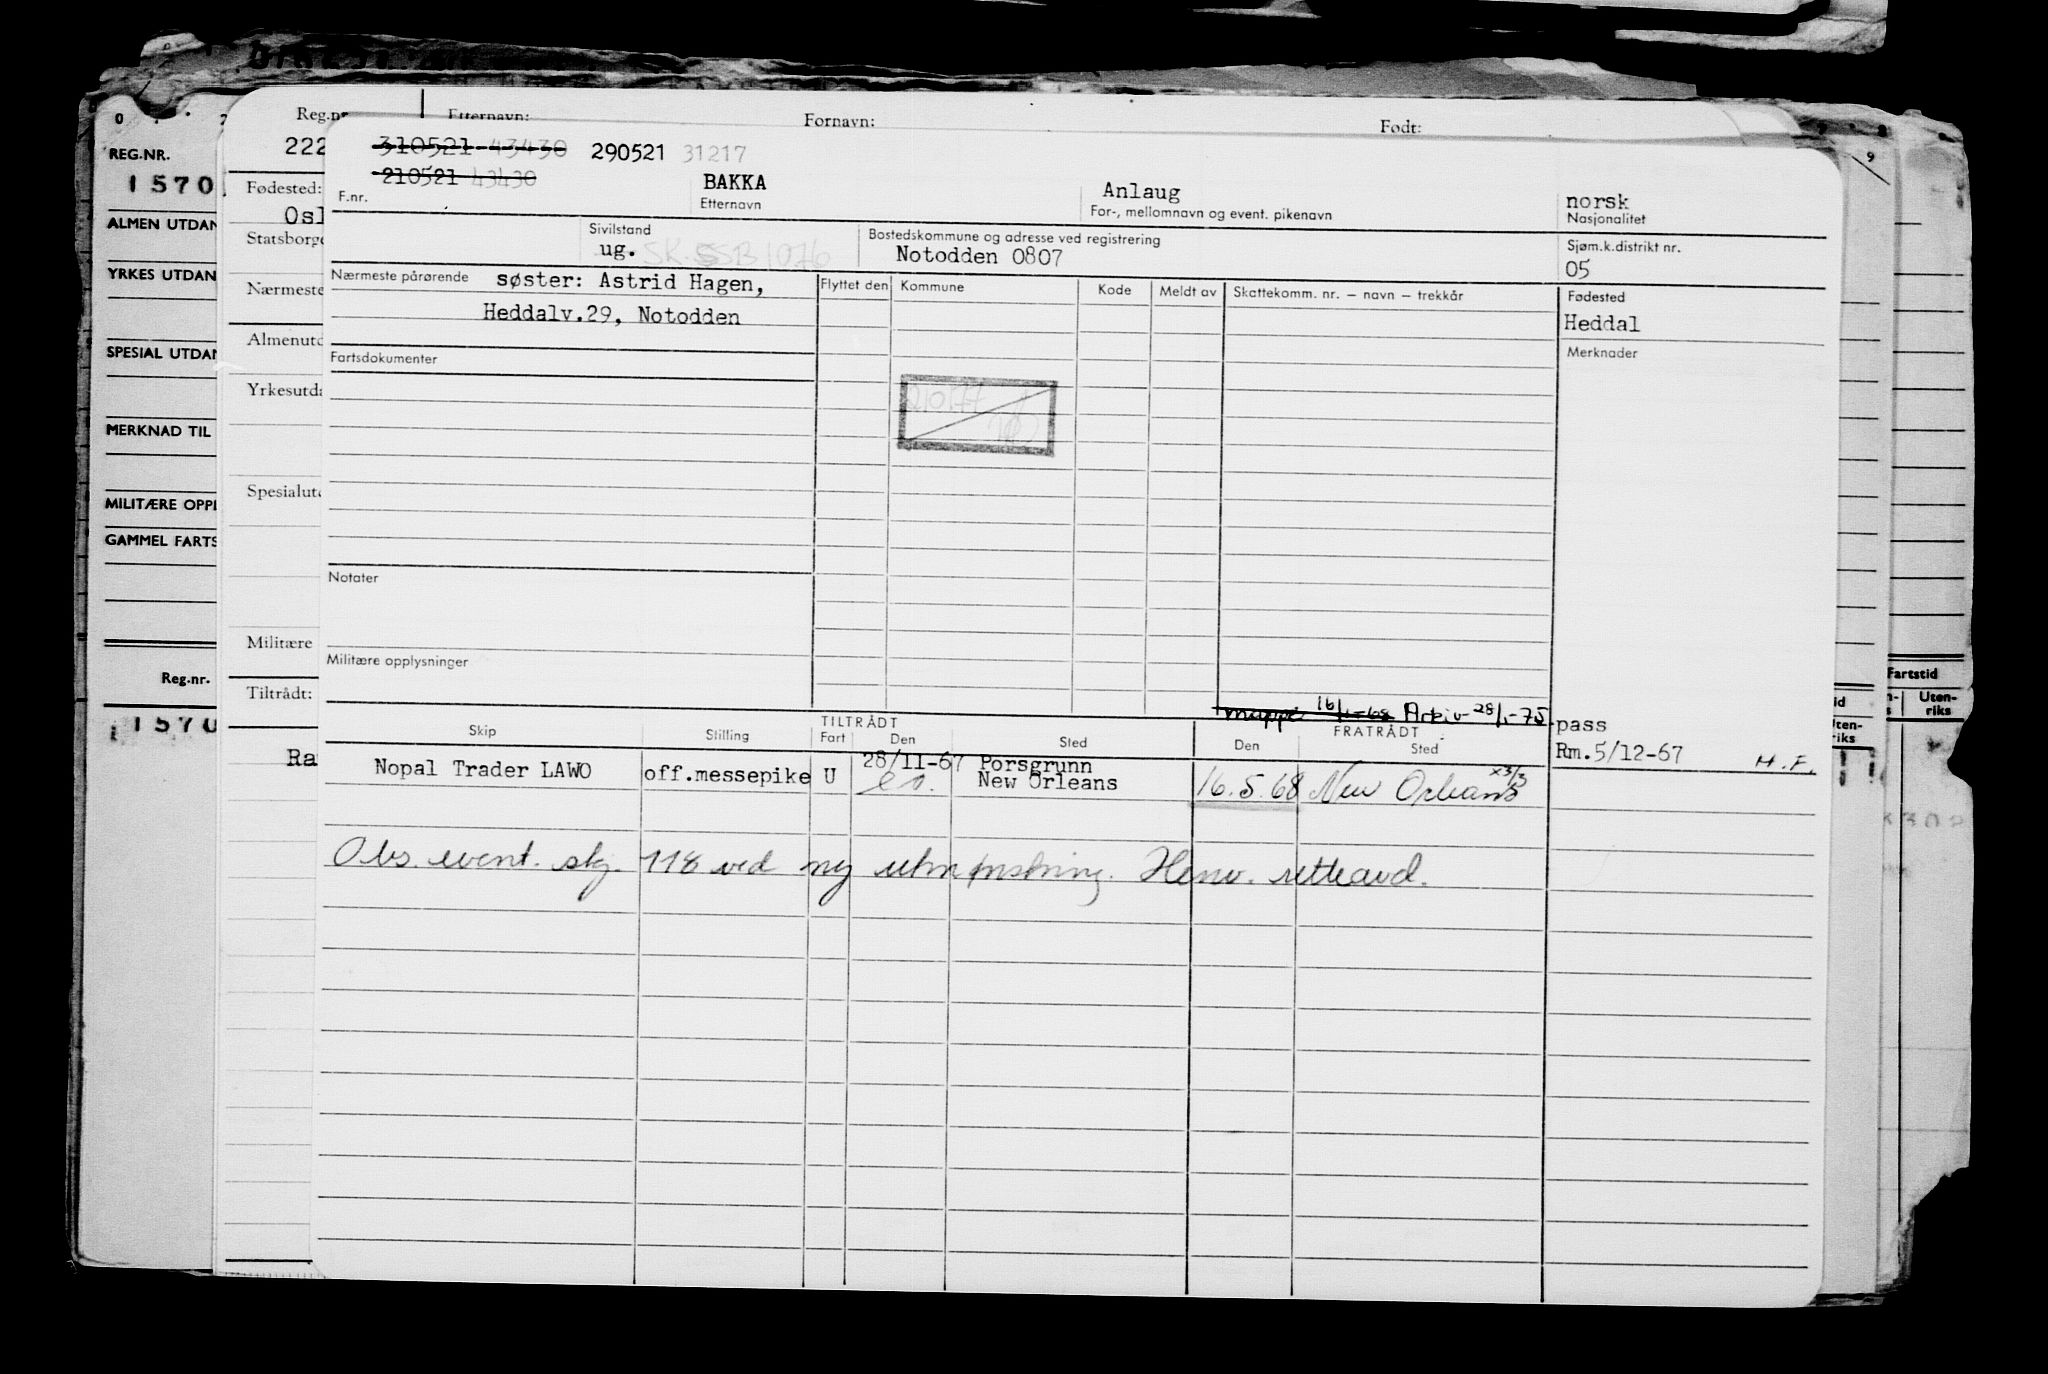 Reg.nr. Etternavn: Fornavn: Født:
REG.NR. 222 310521 43430 290521 31217 9
1570 210521 43430 BAKKA Anlaug norsk
Fødested: F.nr. Etternavn For-, mellomnavn og event. pikenavn Nasjonalitet
ALMEN UTDAN Osl Sivilstand Bostedskommune og adresse ved registrering Sjøm.k.distrikt nr.
Statsborge ug. SK. SSB 1076 Notodden 0807 05
YRKES UTDAN Nærmeste pårørende søster: Astrid Hagen, Flyttet den Kommune Kode Meldt av Skattekomm. nr. – navn – trekkår Fødested
Nærmeste Heddalv.29, Notodden Heddal
SPESIAL UTDAN Almenutd Fartsdokumenter Merknader
Yrkesutda 21.01.77
MERKNAD TIL
MILITÆRE OPPL Spesialutd
GAMMEL FARTS
Notater
Militære Militære opplysninger
Reg.nr. Tiltrådt: Fartstid
mappe 16/1-68 Arkiv 28/1-75 pass
1570 Skip Stilling TILTRÅDT FRATRÅDT Uten-
Fart Den Sted Den Sted riks
Ra Nopal Trader LAWO off.messepike U 28/11-67 Porsgrunn Rm.5/12-67 H.F.
New Orleans 16.5.68 New Orleans x3/3
Obs. event. skj. 118 ved ny utmønstring. Henv. retteavd.